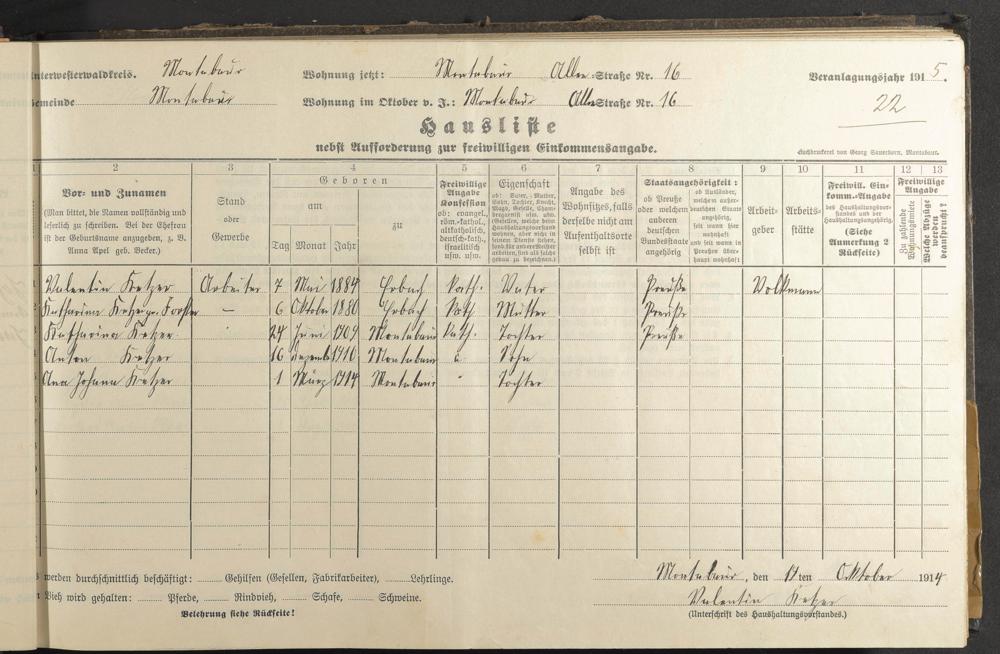 Unterwesterwaldkreis. Montabaur Wohnung jetzt: Montabaur Allee-Straße Nr. 16 Veranlagungsjahr 1915.
Gemeinde Montabaur Wohnung im Oktober v. J.: Montabaur Allee-Straße Nr. 16
22
Hausliste
nebst Aufforderung zur freiwilligen Einkommensangabe.
Buchdruckerei von Georg Sauerborn, Montabaur.
2 3 4 5 6 7 8 9 10 11 12 13
Vor- und Zunamen
(Man bittet, die Namen vollständig und
leserlich zu schreiben. Bei der Ehefrau
ist der Geburtsname anzugeben, z. B.
Anna Apel geb. Becker.)
Stand
oder
Gewerbe
Geboren
am
Tag Monat Jahr
zu
Freiwillige
Angabe
Konfession
ob: evangel.,
röm.-kathol.,
altkatholisch,
deutsch-kath.,
israelitisch
usw. usw.
Eigenschaft
Angabe des
Wohnsitzes, falls
derselbe nicht am
Aufenthaltsorte
selbst ist
Staatsangehörigkeit:
ob Preuße
oder welchem
anderen
deutschen
Bundesstaate
angehörig
ob Ausländer,
welchem außer-
deutschen Staate
angehörig,
seit wann hier
wohnhaft
und seit wann in
Preußen über-
haupt wohnhaft
Arbeit-
geber
Arbeits-
stätte
Freiwill. Ein-
komm.-Angabe
des Haushaltungsvor-
standes und der
Haushaltungsangehörig.
(Siehe
Anmerkung 2
Rückseite)
Freiwillige
Angabe
Zu zahlende
Wohnungsmiete
Welche Abzüge
werden
beansprucht?
Valentin Ketzer Arbeiter 7 Mai 1884 Erbach Kath. Vater Preuße Volkmann
Katharina Ketzer ge. Forster – 6 Oktober 1880 Erbach Kath Mutter Preuße
Katharina Ketzer 24 Juni 1909 Montabaur Kath. Tochter Preuße
Anton Ketzer 16 Dezemb 1910 Montabaur Sohn
Ana Johana Ketzer 1 März 1914 Montabaur Tochter
werden durchschnittlich beschäftigt: Gehilfen (Gesellen, Fabrikarbeiter), Lehrlinge.
Vieh wird gehalten: Pferde, Rindvieh, Schafe, Schweine.
Belehrung siehe Rückseite!
Montabaur, den 17ten Oktober 1914
Valentin Ketzer
(Unterschrift des Haushaltungsvorstandes.)